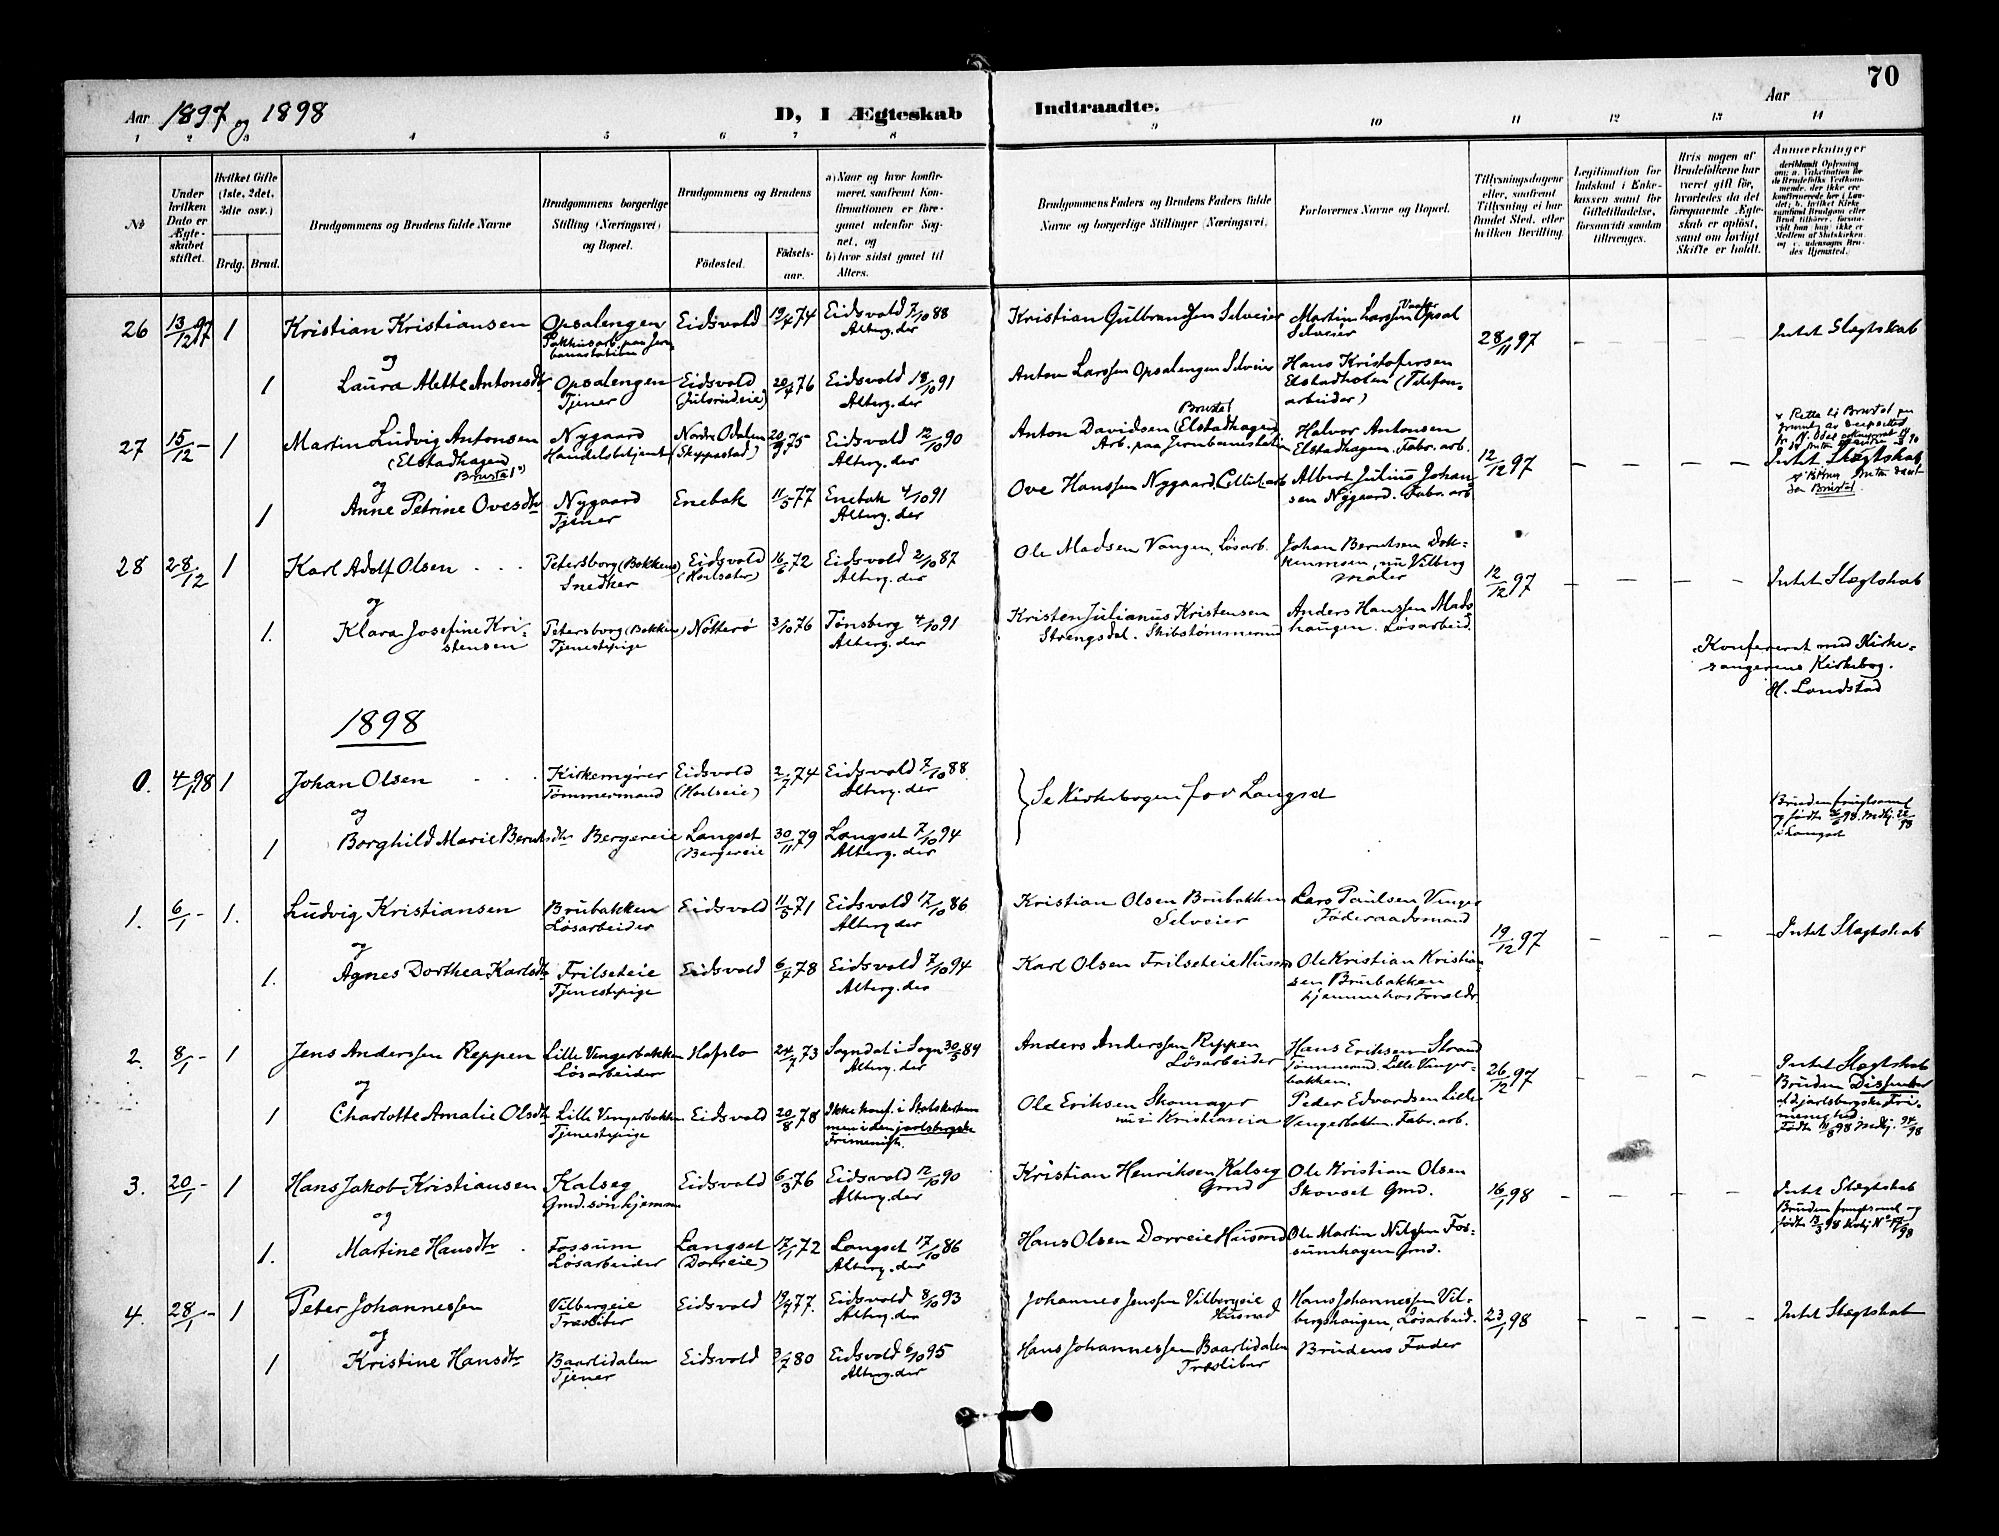 70
Aar 1897 og 1898
D, I Ægteskab Indtraadte.
Aar
1 2 3 4 5 6 7 8 9 10 11 12 13 14
No
Under hvilken Dato er Ægteskabet stiftet.
Hvilket Gifte (1ste, 2det, 3die osv.)
Brdg. Brud.
Brudgommens og Brudens fulde Navne
Brudgommens borgerlige Stilling (Næringsvei) og Bopæl.
Brudgommens og Brudens
Fødested.
Fødselsaar.
a) Naar og hvor konfirmeret, saafremt Konfirmationen er foregaaet udenfor Sognet, og
b) hvor sidst gaaet til Alters.
Brudgommens Faders og Brudens Faders fulde Navne og borgerlige Stillinger (Næringsvei).
Forlovernes Navne og Bopæl.
Tillysningsdagene eller, saafremt Tillysning ei har fundet Sted, efter hvilken Bevilling.
Legitimation for Indskud i Enkekassen samt for Giftetilladelse, forsaavidt saadan tiltrænges.
Hvis nogen af Brudefolkene har været gift før, hvorledes da det foregaaende Ægteskab er opløst, samt om lovligt Skifte er holdt.
Anmerkninger
26 13/12 97 1 Kristian Kristiansen Opsalengen Eidsvold 19/4 74 Eidsvold 7/10 88 Kristian Gulbrandsen Selveier Martin Larssen Opsal 28/11 97 Intet Slægtskab
Alterg. der Selveier
og
1 Laura Alette Antonsdtr Opsalengen Eidsvold 20/4 76 Eidsvold 18/10 91 Anton Larssen Opsalengen Selveier Hans Kristofersen
Tjener (Julsrudeie) Alterg. der Elstadholen (Telefonarbeider)
27 15/12 – 1 Martin Ludvig Antonsen Nygaard Nordre Odalen 20/9 75 Eidsvold 12/10 90 Anton Davidsen (Elstadhagen) Halvor Antonsen 12/12 97 Intet Slægtskab
(Elstadhagen Handelsbetjent (Skyppestad) Alterg. der Arb. paa Jernbanestation Elstadhagen. Fabr. arb.
Brustal
og
1 Anne Petrine Ovesdtr Nygaard Enebak 11/5 77 Enebak 4/10 91 Ove Hanssen Nygaard, Albert Julius Johansen Nygaard. Fabr. arb
Tjener Alterg. der
28 28/12 1 Karl Adolf Olsen Petersborg (Bokkens) Eidsvold 16/6 72 Eidsvold 2/10 87 Ole Madsen Vangen, Løsarb. Johan Berntsen 12/12 97 Intet Slægtskab
Snedker Alterg. der nu Vilberg maler
og
1. Klara Josefine Kristensen Petersborg (Bokkens) Nötterö 3/10 76 Tønsberg 4/10 91 Kristen Julianus Kristensen Anders Hanssen Madshaugen. Løsarbeid.
Tjenestepige Alterg. der Strengsdal. Skibstømmermd
Konfereret med Kirkesangerens Kirkebog.
H. Landstad
1898
0. 4/1 98 1 Johan Olsen Kirkemyrer Eidsvold 2/7 74 Eidsvold 7/10 88. Se Kirkebogen for Langset
Tømmermand Alterg. der
og
1 Borghild Marie Berntsdtr Bergereie Langset 30/11 79 Langset 7/10 94
(Bergereie Alterg. der
1. 6/1 – 1. Ludvig Kristiansen Brubakken Eidsvold 11/5 71 Eidsvold 17/10 86 Kristian Olsen Brubakken Lars Paulsen Vinger 19/12 97 Intet Slægtskab
Løsarbeider Alterg der Selveier Føderaadsmand
og
1. Agnes Dorthea Karlsdtr Frilseteie Eidsvold 6/4 78 Eidsvold 7/10 94 Karl Olsen Frilseteie Husm Ole Kristian Kristiansen Brubakken
Tjenestepige Alterg. der hjemme hos Foraldr.
2. 8/1 – 1 Jens Anderssen Reppen Lille Vengerbakken Hafslo 24/7 73 Sogndal i Sogn 30/5 84 Anders Anderssen Reppen Hans Eriksen Strand 26/12 97 Intet Slægtskab
Løsarbeider Alterg. der Løsarbeider Tømmermd. Lille Vengerbakken. Bruden Dissenter
og
1 Charlotte Amalie Olsdtr Lille Vengerbakken Eidsvold 20/8 78 Ikke konf. i Statskirken men i den jarlsbergske Frimenigh. Ole Eriksen Skomager Peder Edvardsen Lille
Tjenestepige nu i Kristiania Vengerbakken. Fabr. arb.
3. 20/1 – 1 Hans Jakob Kristiansen Kalseg Eidsvold 6/3 76 Eidsvold 12/10 90 Kristian Henriksen Kalseg Ole Kristian Olsen 16/1 98 Intet Slægtskab
Gmd. søn hjemme Alterg. der Gmd Skovset Gmd.
og
1. Martine Hansdtr Fossum Langset 17/1 72 Langset 17/10 86 Hans Olsen Dorreie Husmd Ole Martin Nilssen Fossumhagen Gmd.
Løsarbeider (Dorreie) Alterg. der
4. 28/1 – 1 Peter Johannessen Vilbergeie Eidsvold 19/4 77. Eidsvold 8/10 93 Johannes Jenssen Vilbergeie Hans Johannessen Vilbergshaugen, Løsarbeid. 23/1 98 Intet Slægtskab
Træsliber Alterg. der Husmd
og
1 Kristine Hansdtr Baarlidalen Eidsvold 3/7 80 Eidsvold 6/10 95 Hans Johannessen Baarlidalen Brudens Fader
Tjener Alterg. der Træsliber